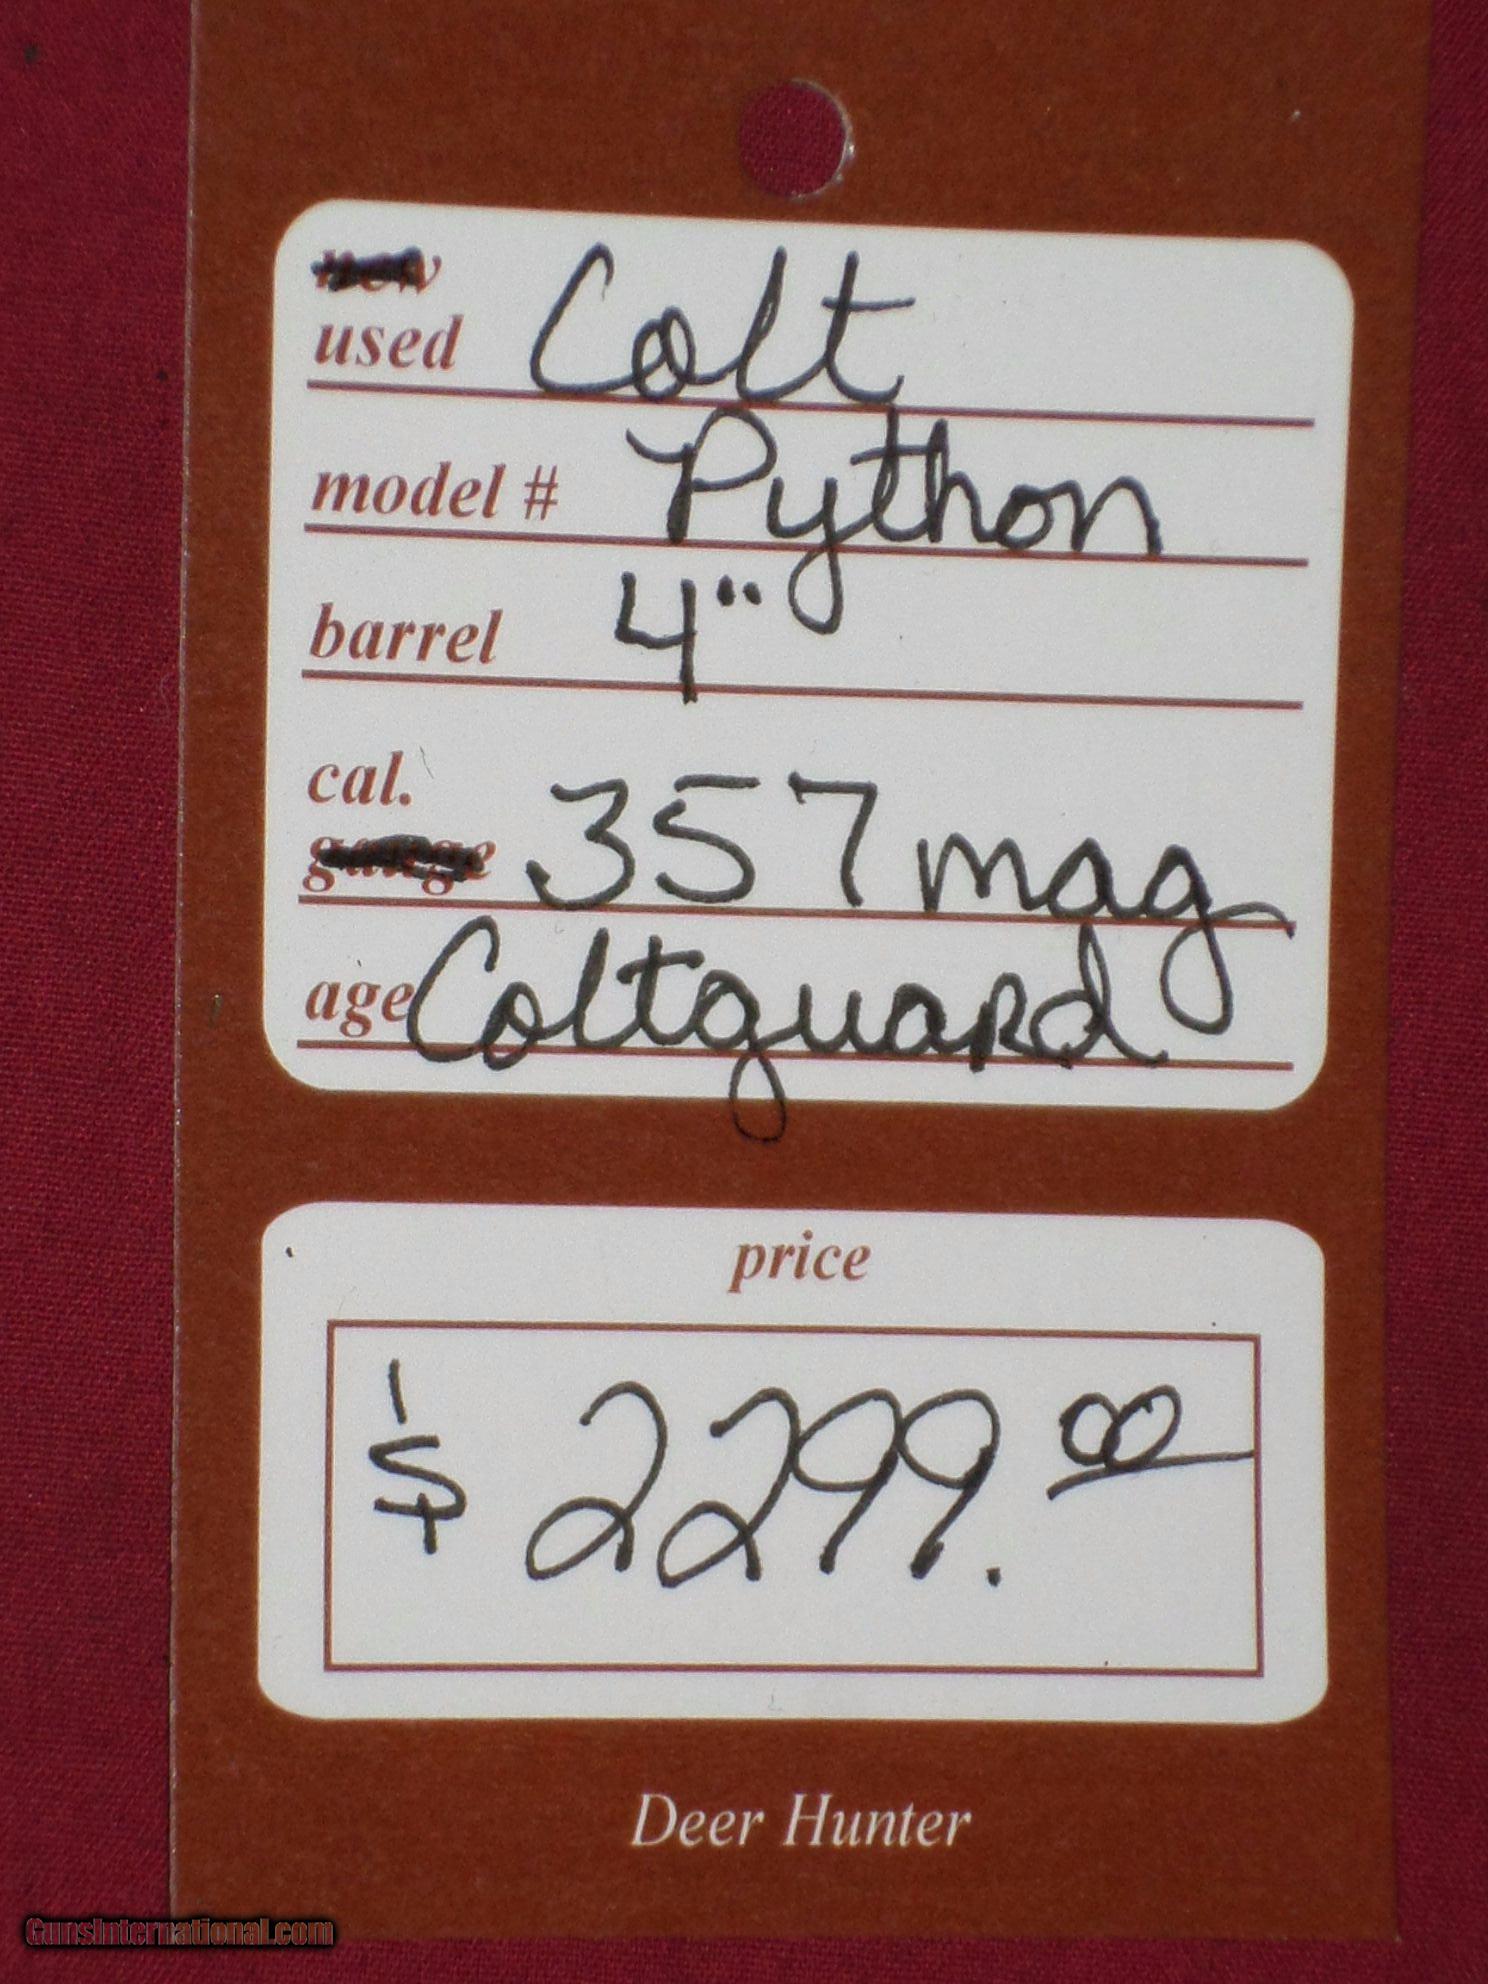 new
used Colt
model # Python
barrel 4"
cal.
gauge 357 mag
age Coltguard
price
$2299.00
Deer Hunter
GunsInternational.com